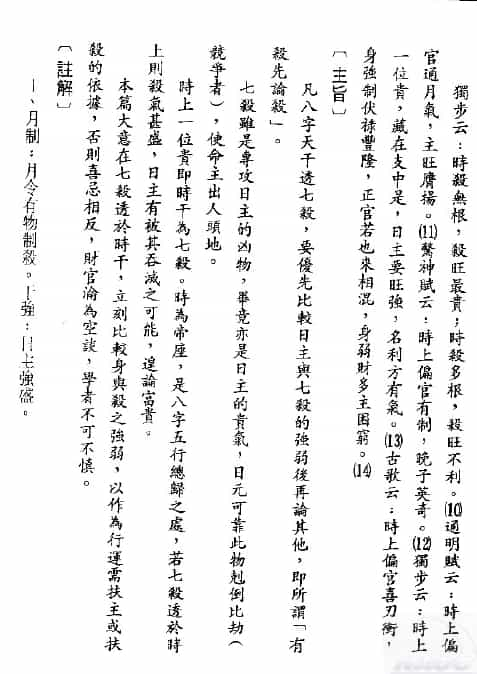 獨步云：時殺無根，殺旺最貴；時殺多根，殺旺不利。⑽通明賦云：時上偏
官通月氣，主旺膺揚。⑾驚神賦云：時上偏官有制，晚子英奇。⑿獨步云：時上
一位貴，藏在支中是，日主要旺強，名利方有氣。⒀古歌云：時上偏官喜刃衝，
身強制伏祿豐隆，正官若也來相混，身弱財多主困窮。⒁
〔主旨〕
凡八字天干透七殺，要優先比較日主與七殺的強弱後再論其他，即所謂「有
殺先論殺」。
七殺雖是專攻日主的凶物，畢竟亦是日主的貴氣，日元可靠此物剋倒比劫（
競爭者），使命主出人頭地。
時上一位貴即時干為七殺。時為帝座，是八字五行總歸之處，若七殺透於時
上則殺氣甚盛，日主有被其吞滅之可能，遑論富貴。
本篇大意在七殺透於時干，立刻比較身與殺之強弱，以作為行運需扶主或扶
殺的依據，否則喜忌相反，財官淪為空談，學者不可不慎。
〔註解〕
一、月制：月令有物制殺。干強：日主強盛。